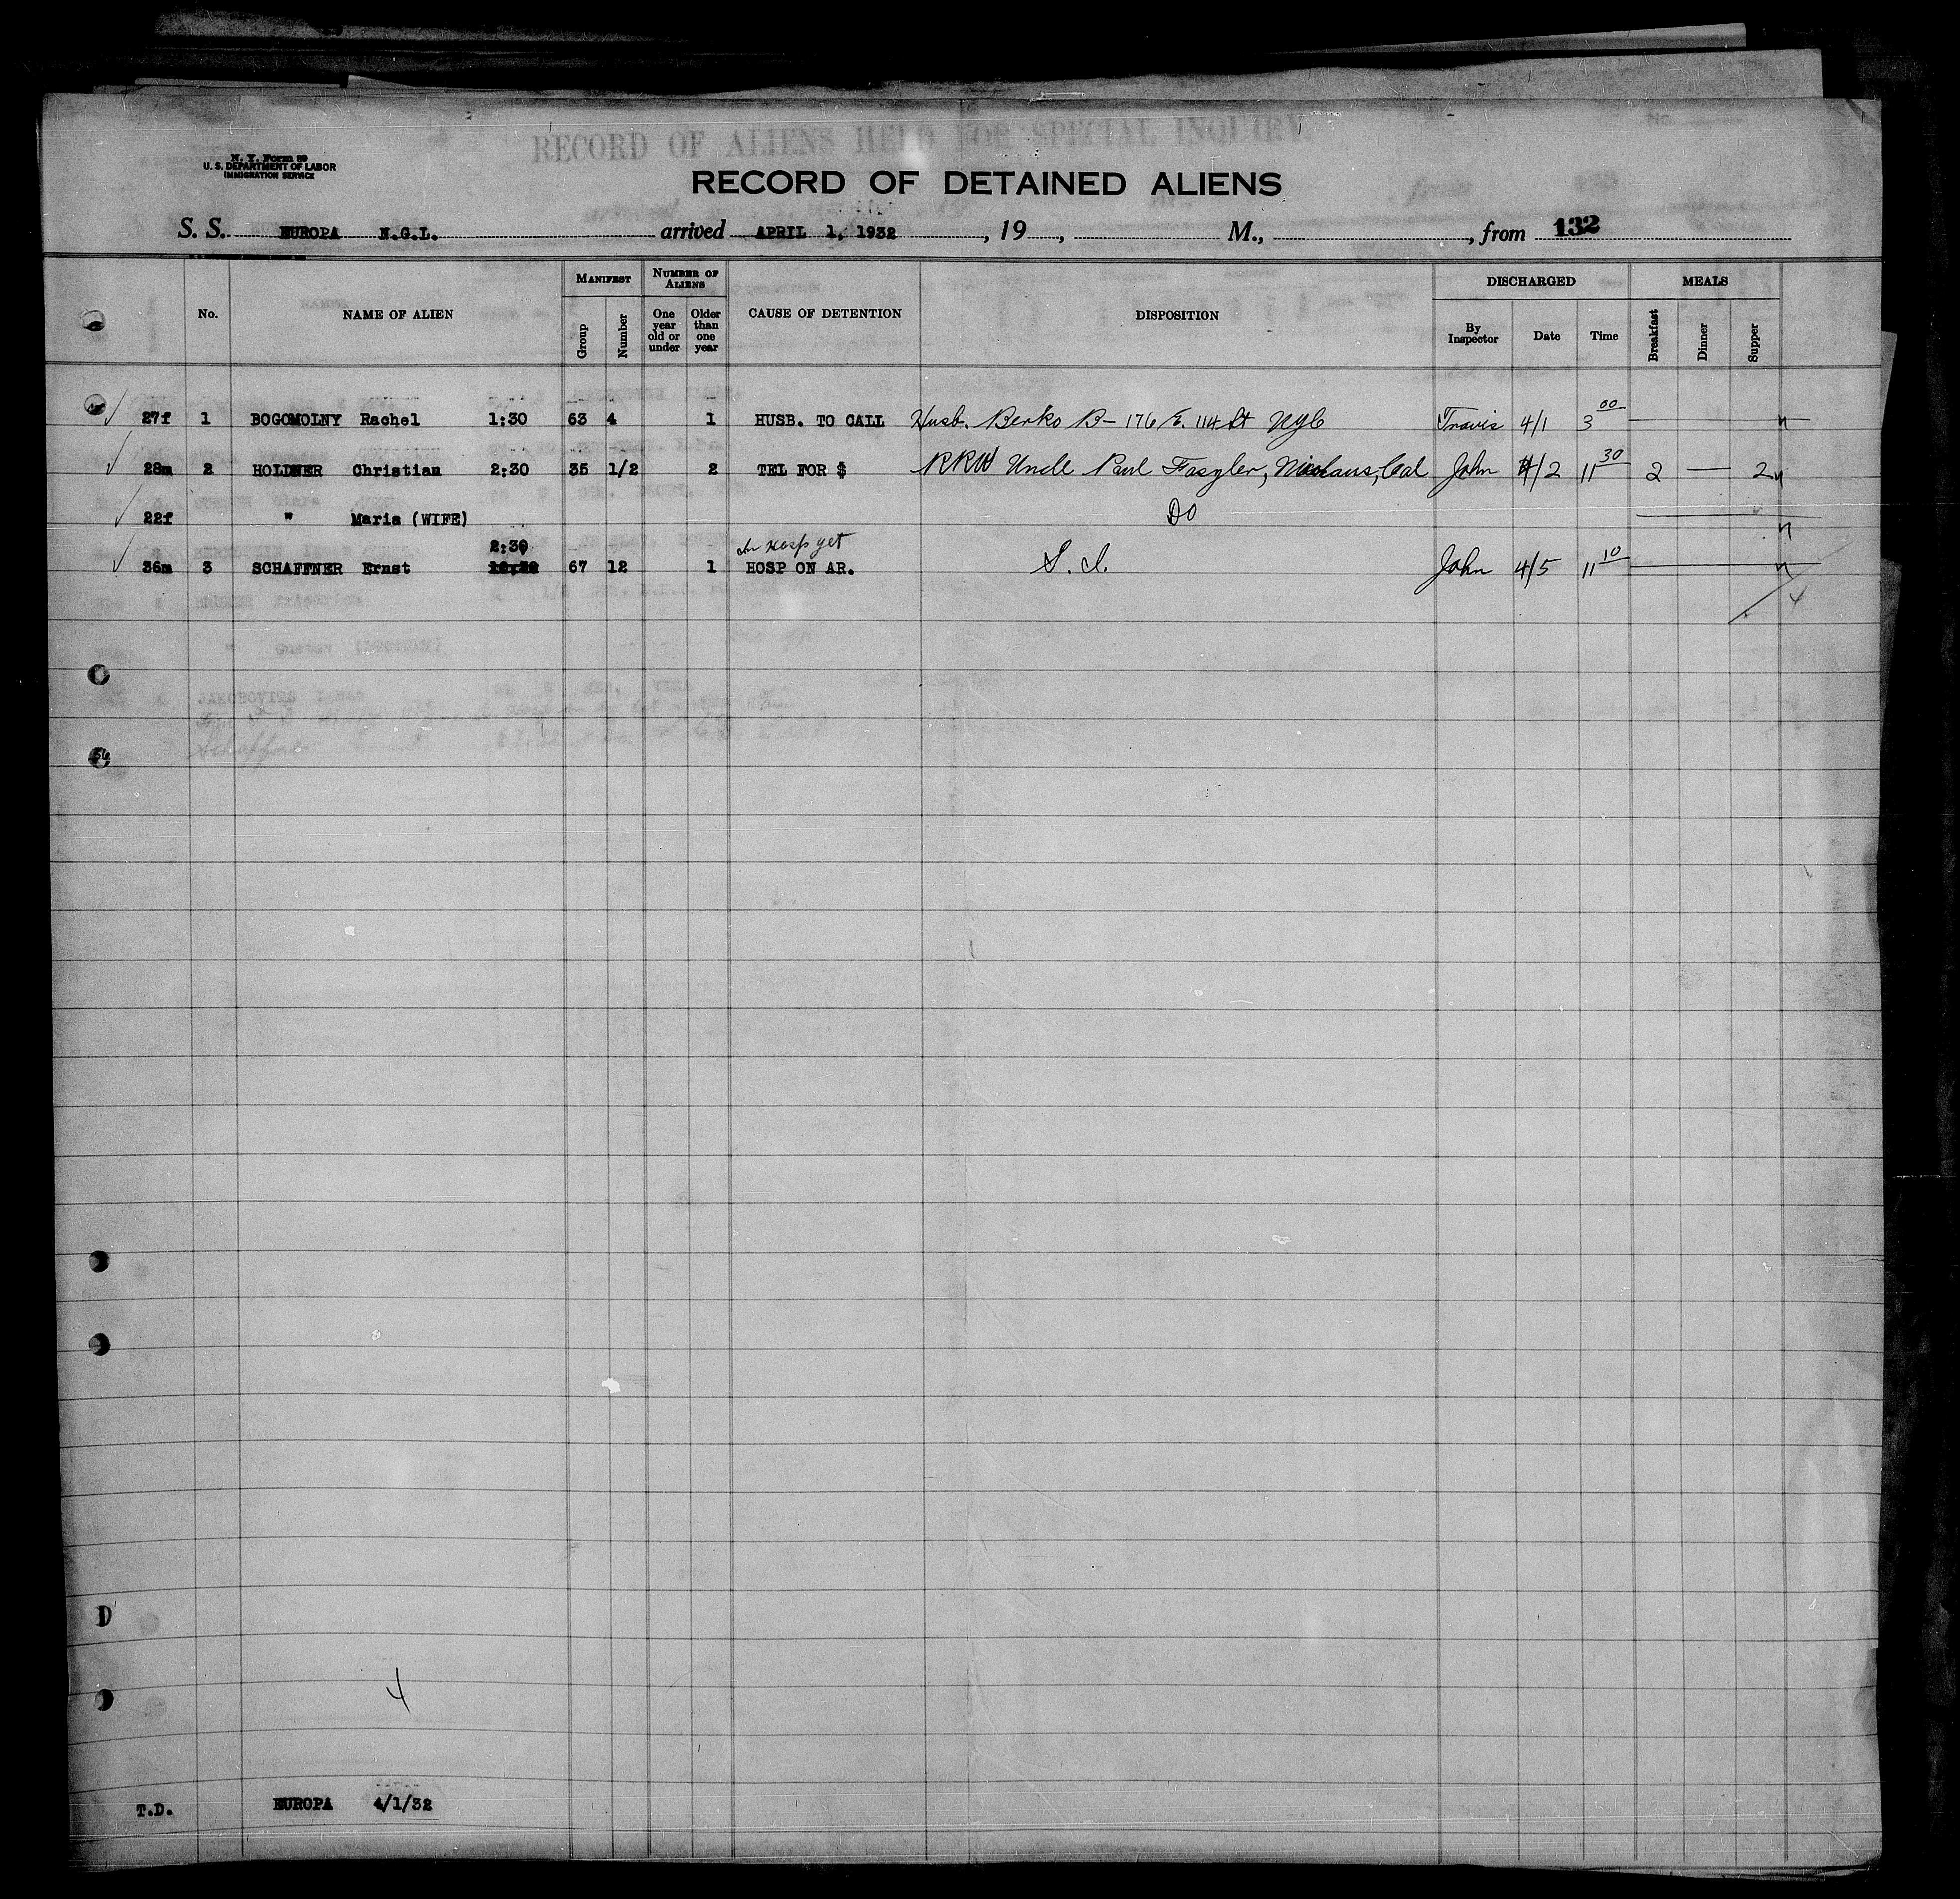 RECORD OF ALIENS HELD FOR SPECIAL INQUIRY
N. Y. Form 89
U. S. DEPARTMENT OF LABOR
IMMIGRATION SERVICE
RECORD OF DETAINED ALIENS
S. S. EUROPA N.G.L. arrived APRIL 1, 1932, 19 , M., , from 132
MANIFEST NUMBER OF ALIENS DISCHARGED MEALS
No. NAME OF ALIEN Group Number One year old or under Older than one year CAUSE OF DETENTION DISPOSITION By Inspector Date Time Breakfast Dinner Supper
27f 1 BOGOMOLNY Rachel 1:30 63 4 1 HUSB. TO CALL Husb. Berko B- 176 E. 114 St NYC Travis 4/1 3 00
28m 2 HOLDNER Christian 2:30 35 1/2 2 TEL FOR $ RRW Uncle Paul Fasgler, Nicolaus, Cal John 4/2 11 30 2 — 2
22f " Maria (WIFE) DO
2:30 In Hosp yet
36m 3 SCHAFFNER Ernst 67 12 1 HOSP ON AR. S. I. John 4/5 11 10
4
D
4
T.D. EUROPA 4/1/32